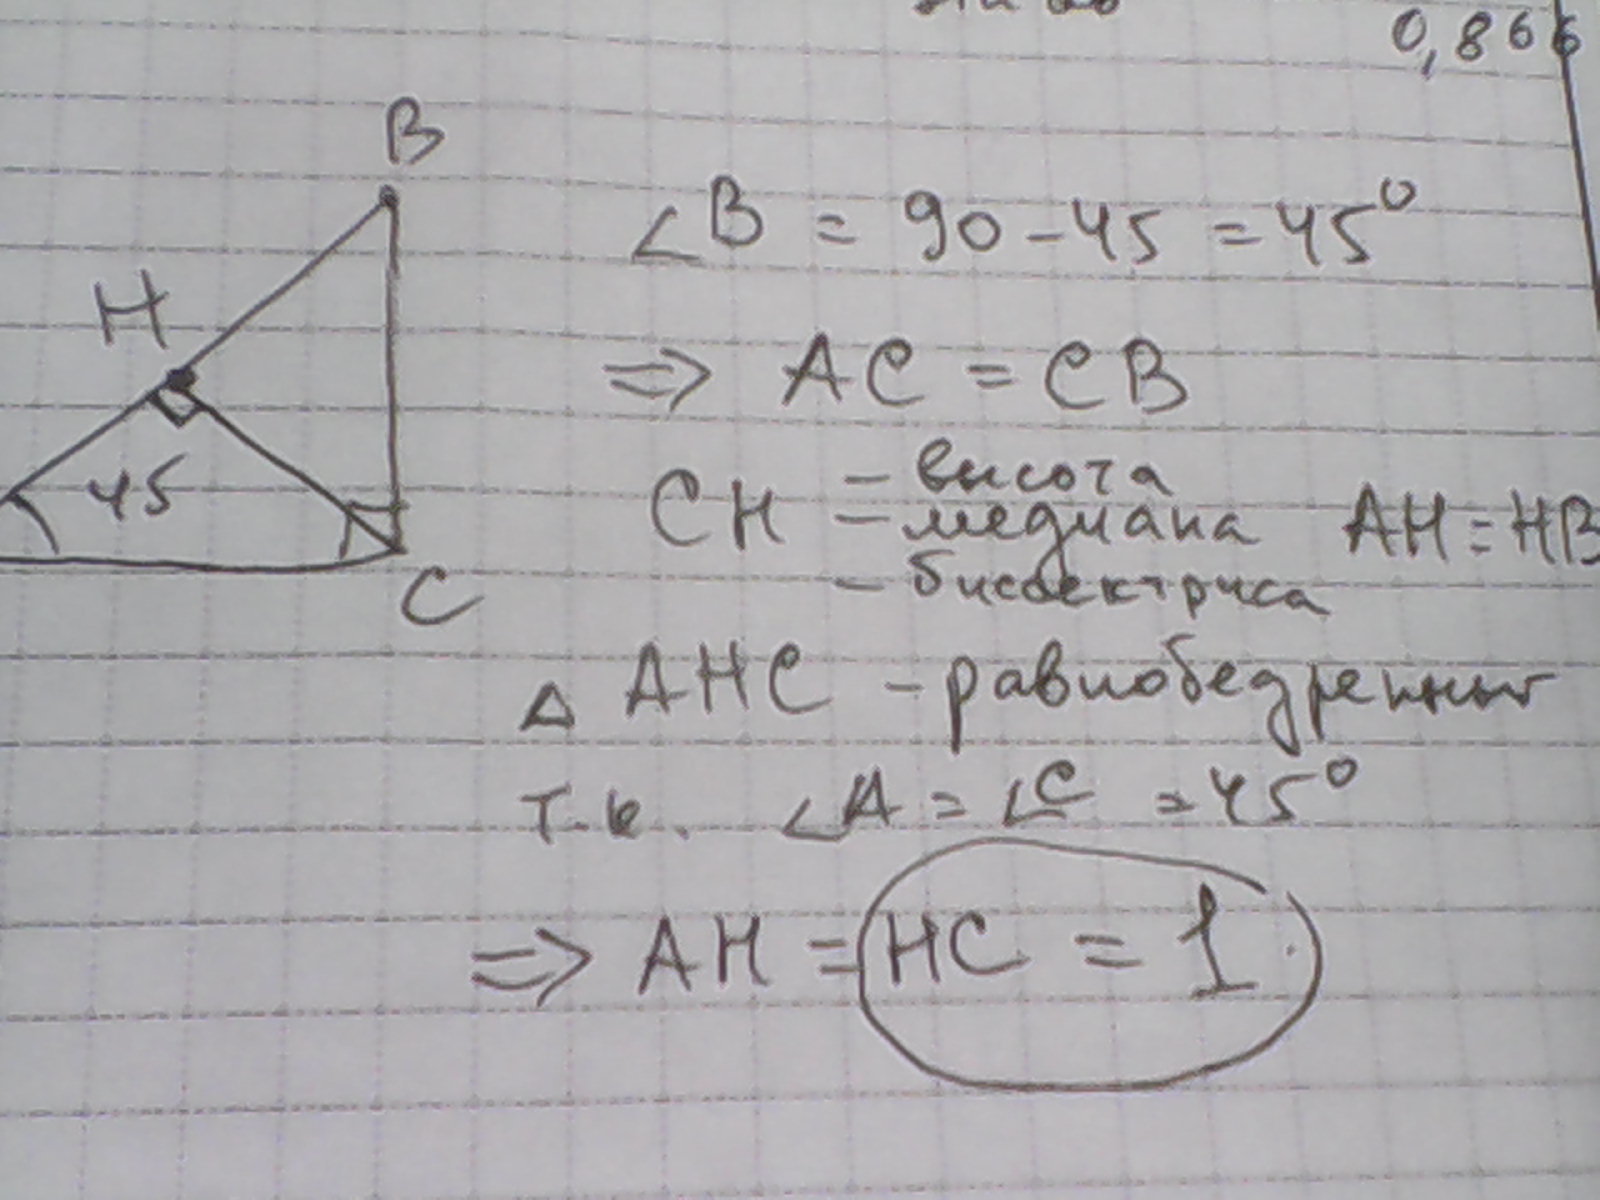 0,866
B
∠B = 90 - 45 = 45°
H
⇒ AC = CB
45
CH - высота
- медиана AH = HB
- биссектриса
C
Δ AHC - равнобедренный
т.к. ∠A = ∠C = 45°
⇒ AH = HC = 1